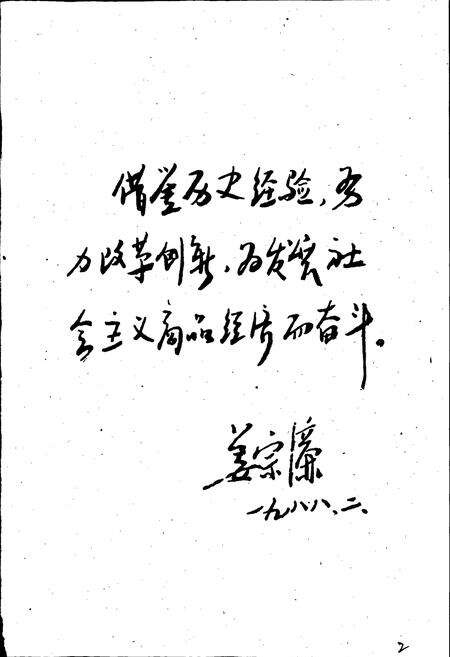 借鉴历史经验，努
力改革创新，为发展社
会主义商品经济而奋斗。
姜宗廉
一九八八、二、
2